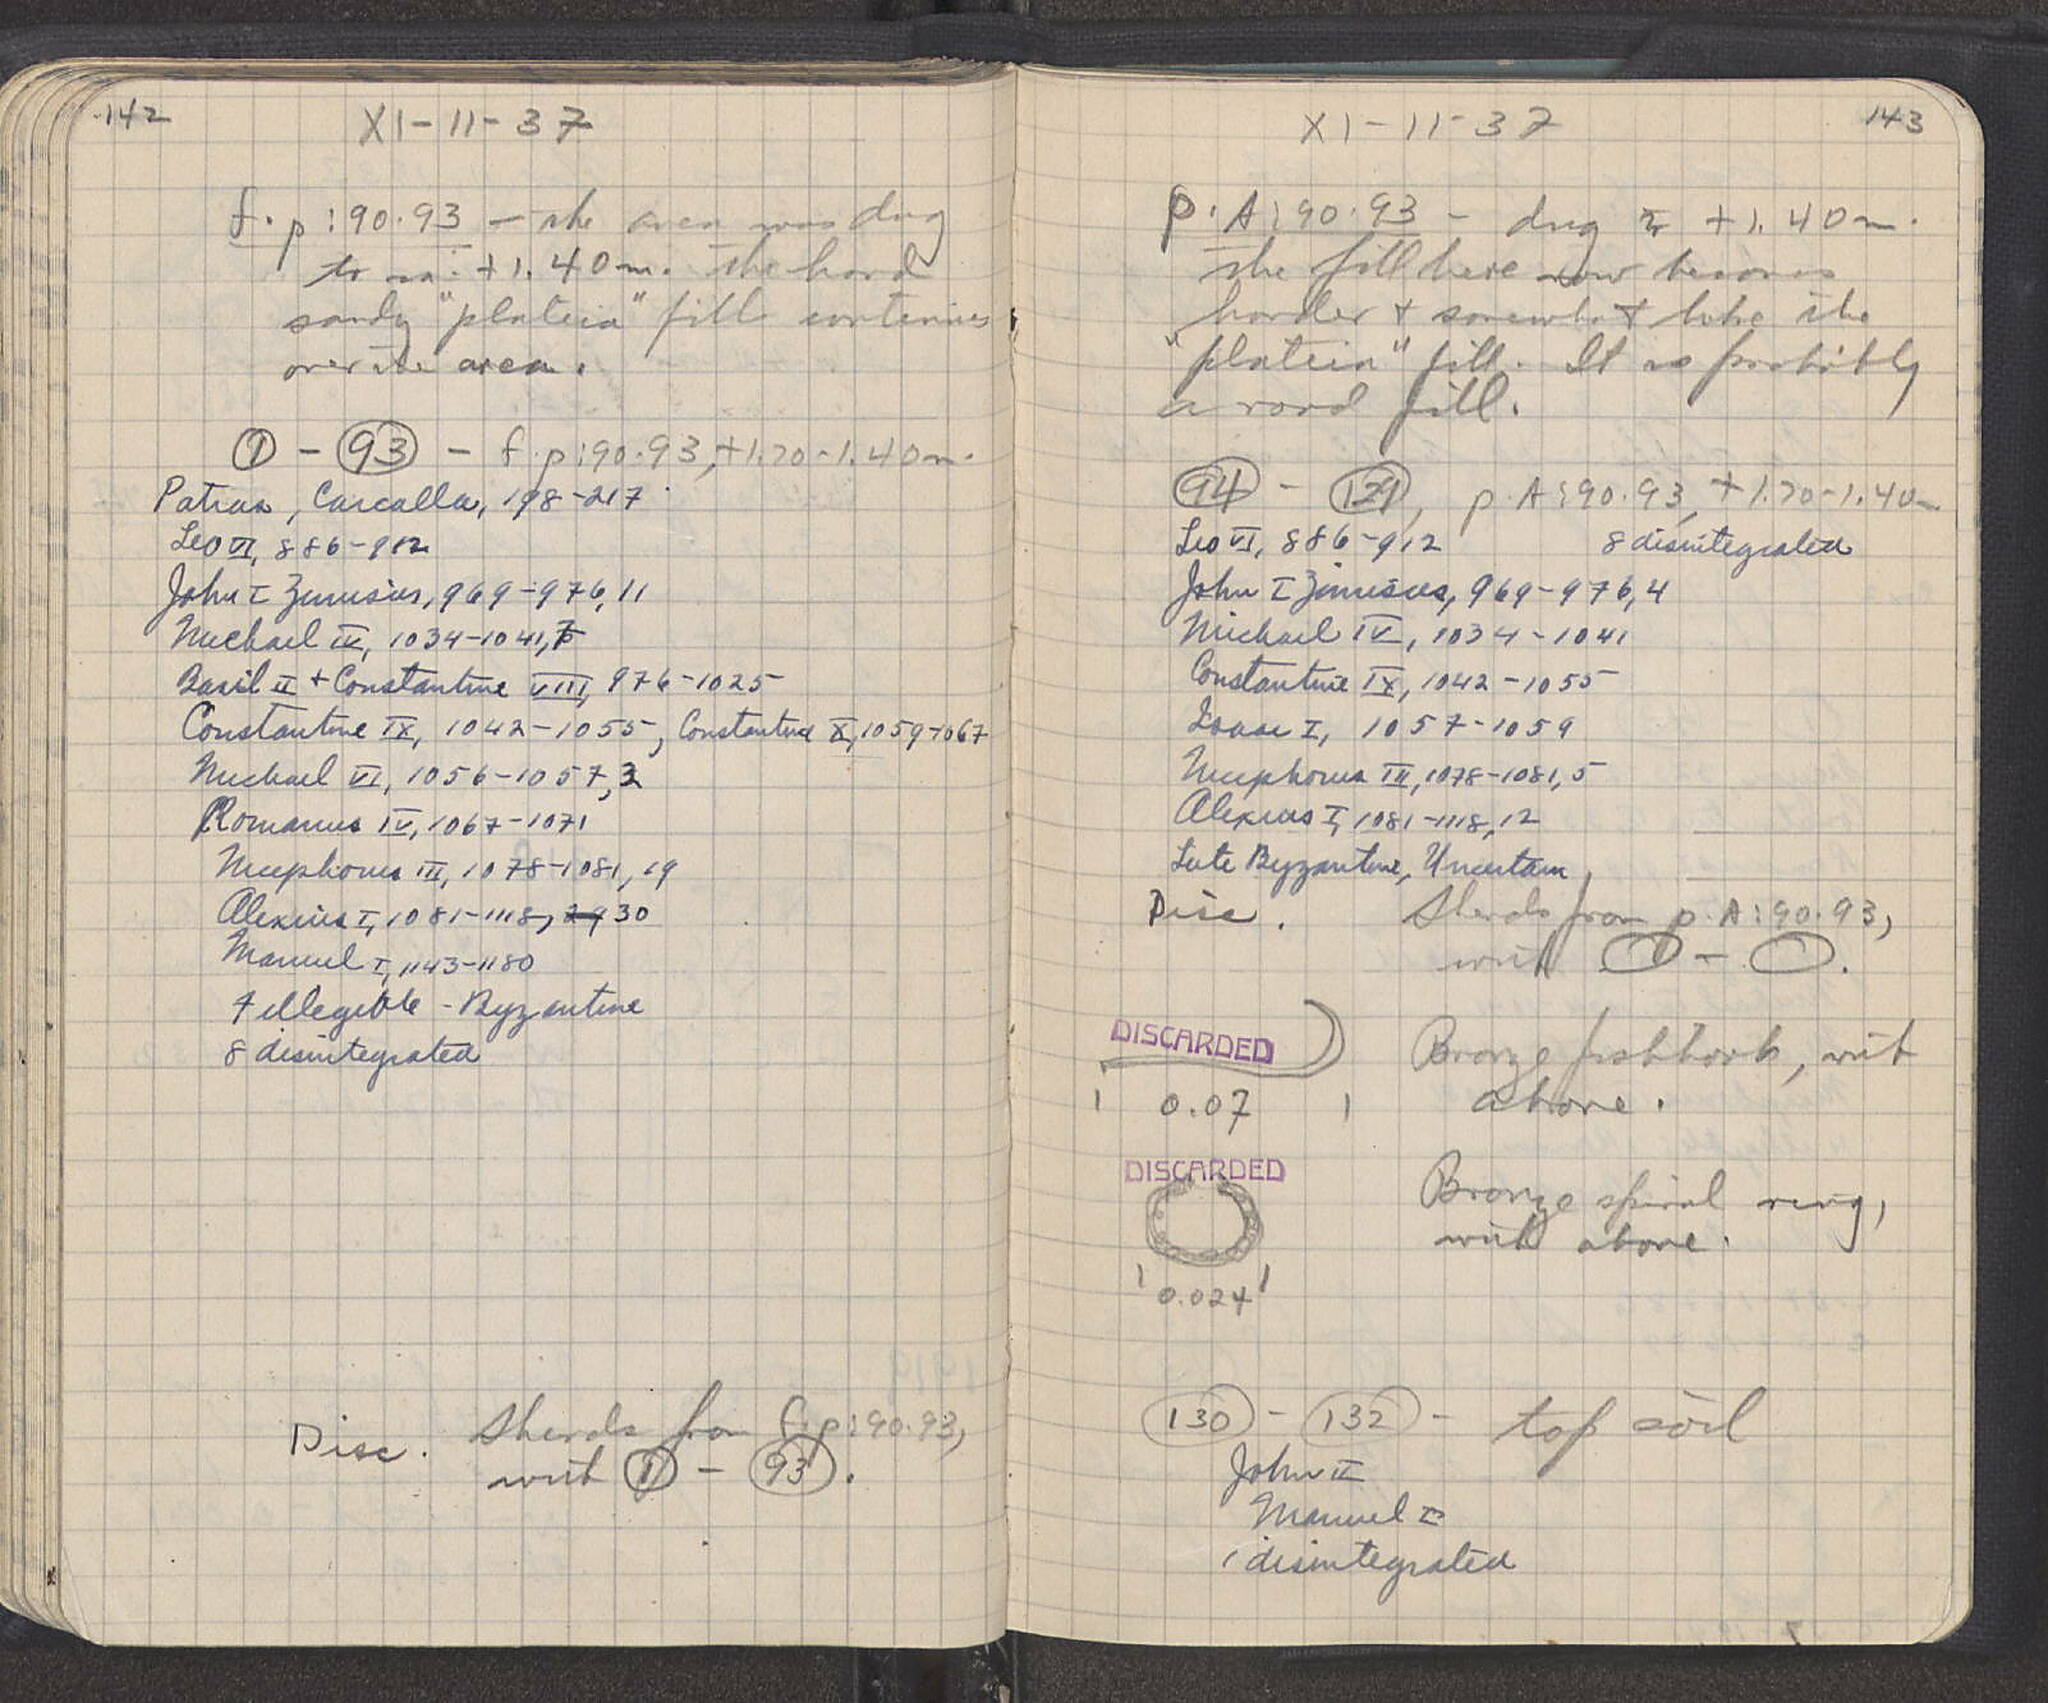 142
XI-11-37
f.p:90.93 - the area was dug
to +1.40m. The hard
sandy "plateia" fill continues
over the area.
1 - 93 - f.p:90.93, +1.70-1.40m.
Patras, Carcalla, 198-217
Leo VI, 886-912
John I Zimisius, 969-976, 11
Michael IV, 1034-1041, 7
Basil II + Constantine VIII, 976-1025
Constantine IX, 1042-1055, Constantine X, 1059-1067
Michael VI, 1056-1057, 3
Romanus IV, 1067-1071
Nicephorus III, 1078-1081, 19
Alexius I, 1081-1118, 29 30
Manuel I, 1143-1180
7 illegible - Byzantine
8 disintegrated
Disc. Sherds from f.p:90.93,
with 1 - 93.
XI-11-37
143
p.A:90.93 - dug to +1.40m.
The fill here now becomes
harder + somewhat like the
"plateia" fill. It is probably
a road fill.
94 - 129, p.A:90.93, +1.70-1.40m
Leo VI, 886-912 8 disintegrated
John I Zimisius, 969-976, 4
Michael IV, 1034-1041
Constantine IX, 1042-1055
Isaac I, 1057-1059
Nicephorus III, 1078-1081, 5
Alexius I, 1081-1118, 12
Late Byzantine, Uncertain
Disc. Sherds from p.A:90.93,
with - .
DISCARDED
Bronze fishhook, with
0.07 above.
DISCARDED
Bronze spiral ring,
with above.
0.024
130 - 132 - top soil
John II
Manuel I
1 disintegrated